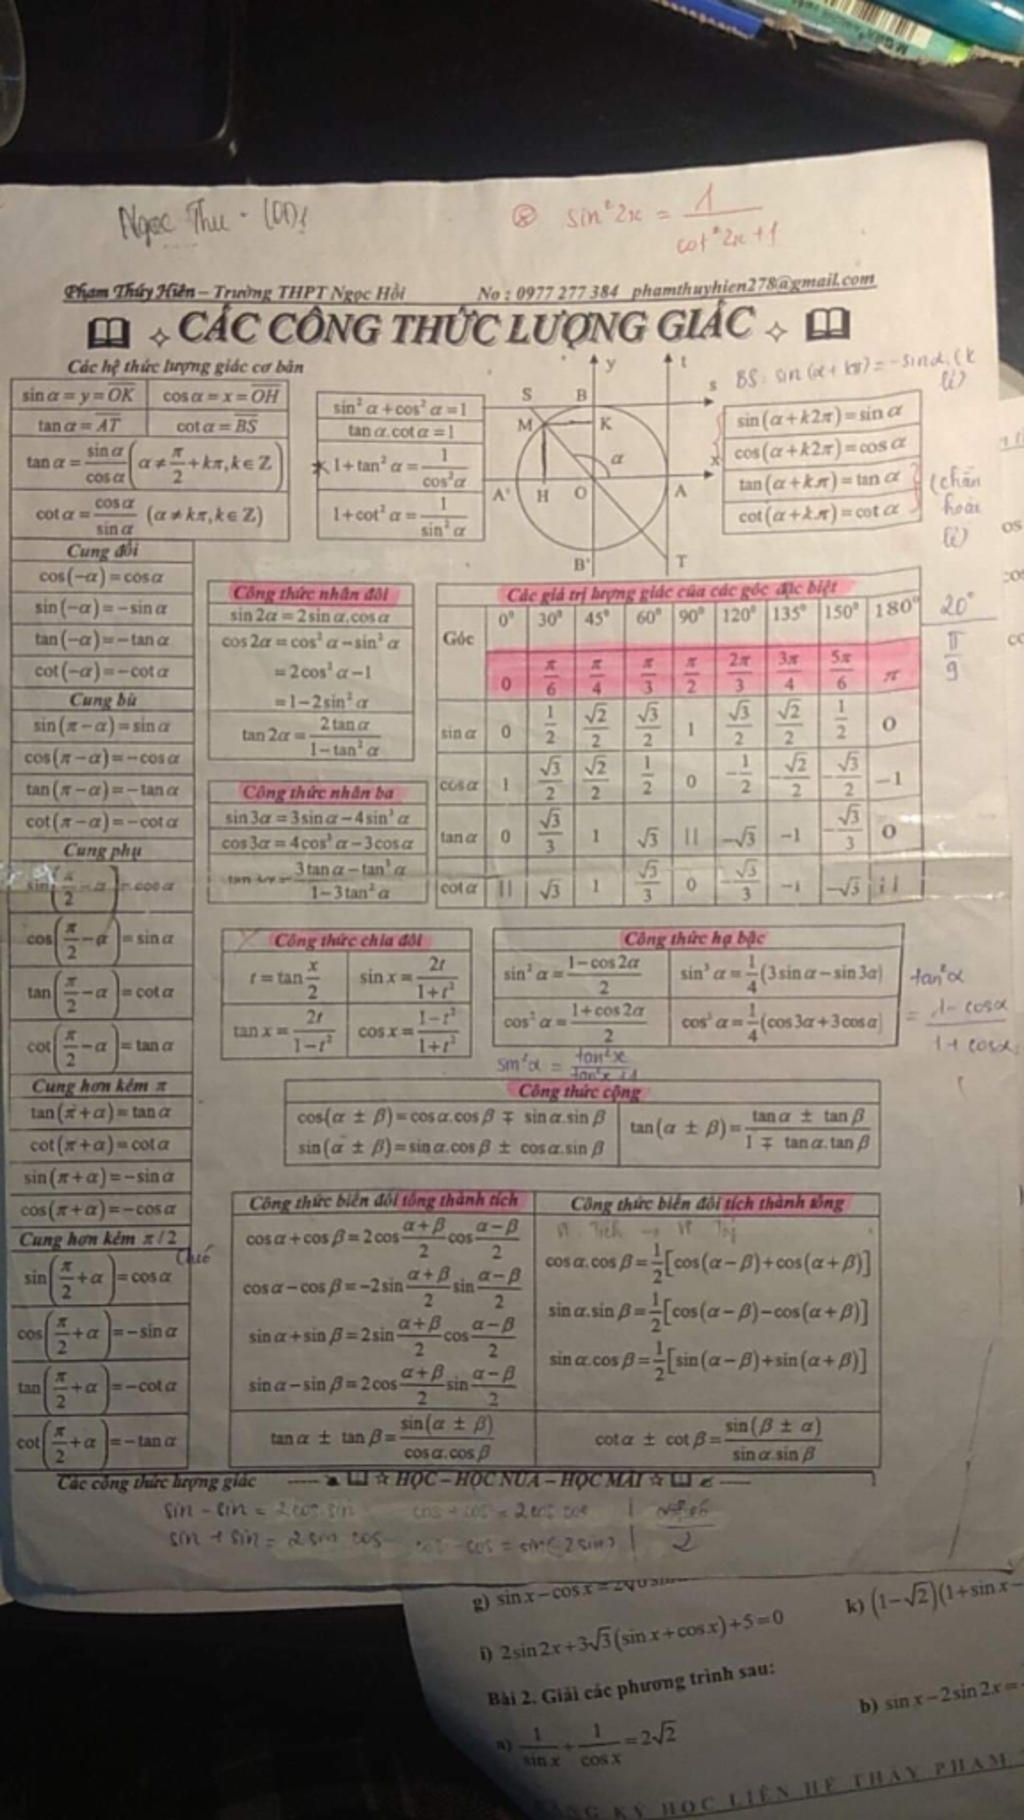 Ngọc Thu - 10D1
⊗ sin²2x = 1/(cot²2x+1)
Phạm Thúy Hiên – Trường THPT Ngọc Hồi No : 0977 277 384 phamthuyhien278@gmail.com
CÁC CÔNG THỨC LƯỢNG GIÁC
Các hệ thức lượng giác cơ bản
sin α = y = OK
cos α = x = OH
tan α = AT
cot α = BS
tan α = sin α/cos α (α ≠ π/2 + kπ, k ∈ Z)
cot α = cos α/sin α (α ≠ kπ, k ∈ Z)
sin² α + cos² α = 1
tan α.cot α = 1
1 + tan² α = 1/cos² α
1 + cot² α = 1/sin² α
y t
S B s
M K
α x
A' H O A
B' T
BS: sin(α + kπ) = -sin α (k
lẻ)
sin(α + k2π) = sin α
cos(α + k2π) = cos α
tan(α + kπ) = tan α
cot(α + kπ) = cot α
(chẵn
hoặc
lẻ)
Cung đối
cos(−α) = cos α
sin(−α) = −sin α
tan(−α) = −tan α
cot(−α) = −cot α
Cung bù
sin(π − α) = sin α
cos(π − α) = −cos α
tan(π − α) = −tan α
cot(π − α) = −cot α
Cung phụ
sin(π/2 − α) = cos α
cos(π/2 − α) = sin α
tan(π/2 − α) = cot α
cot(π/2 − α) = tan α
Cung hơn kém π
tan(π + α) = tan α
cot(π + α) = cot α
sin(π + α) = −sin α
cos(π + α) = −cos α
Cung hơn kém π / 2
sin(π/2 + α) = cos α
cos(π/2 + α) = −sin α
tan(π/2 + α) = −cot α
cot(π/2 + α) = −tan α
Công thức nhân đôi
sin 2α = 2 sin α.cos α
cos 2α = cos² α − sin² α
= 2cos² α − 1
= 1 − 2sin² α
tan 2α = 2 tan α/(1 − tan² α)
Công thức nhân ba
sin 3α = 3sin α − 4sin³ α
cos 3α = 4cos³ α − 3cos α
3 tan α − tan³ α/(1 − 3tan² α)
Các giá trị lượng giác của các góc đặc biệt
Góc 0° 30° 45° 60° 90° 120° 135° 150° 180°
0 π/6 π/4 π/3 π/2 2π/3 3π/4 5π/6 π
sin α 0 1/2 √2/2 √3/2 1 √3/2 √2/2 1/2 0
cos α 1 √3/2 √2/2 1/2 0 −1/2 −√2/2 −√3/2 −1
tan α 0 √3/3 1 √3 || −√3 −1 −√3/3 0
cot α || √3 1 √3/3 0 −√3/3 −1 −√3 ||
20°
π/9
Công thức chia đôi
t = tan x/2
sin x = 2t/(1+t²)
tan x = 2t/(1−t²)
cos x = (1−t²)/(1+t²)
Công thức hạ bậc
sin² α = (1 − cos 2α)/2
sin³ α = 1/4(3sin α − sin 3α)
cos² α = (1 + cos 2α)/2
cos³ α = 1/4(cos 3α + 3cos α)
tan²α
= (1 - cosα)/(1 + cosα)
sin²α = tan²x/(tan²x + 1)
Công thức cộng
cos(α ± β) = cos α.cos β ∓ sin α.sin β
sin(α ± β) = sin α.cos β ± cos α.sin β
tan(α ± β) = (tan α ± tan β)/(1 ∓ tan α.tan β)
Công thức biến đổi tổng thành tích
cos α + cos β = 2cos (α+β)/2 cos (α−β)/2
cos α − cos β = −2sin (α+β)/2 sin (α−β)/2
sin α + sin β = 2sin (α+β)/2 cos (α−β)/2
sin α − sin β = 2cos (α+β)/2 sin (α−β)/2
tan α ± tan β = sin(α ± β)/(cos α.cos β)
Công thức biến đổi tích thành tổng
cos α.cos β = 1/2[cos(α − β) + cos(α + β)]
sin α.sin β = 1/2[cos(α − β) − cos(α + β)]
sin α.cos β = 1/2[sin(α − β) + sin(α + β)]
cot α ± cot β = sin(β ± α)/(sin α.sin β)
Các công thức lượng giác HỌC – HỌC NỮA – HỌC MÃI
sin - sin = 2 cos sin cos + cos = 2 cos cos
sin + sin = 2 sin cos cos - cos = sin(-2 sin)
2
g) sin x − cos x =
k) (1−√2)(1+sin x −
i) 2sin 2x + 3√3(sin x + cos x) + 5 = 0
Bài 2. Giải các phương trình sau:
a) 1/sin x + 1/cos x = 2√2
b) sin x − 2sin 2x =
KÝ HỌC LIÊN HỆ THẦY PHẠM